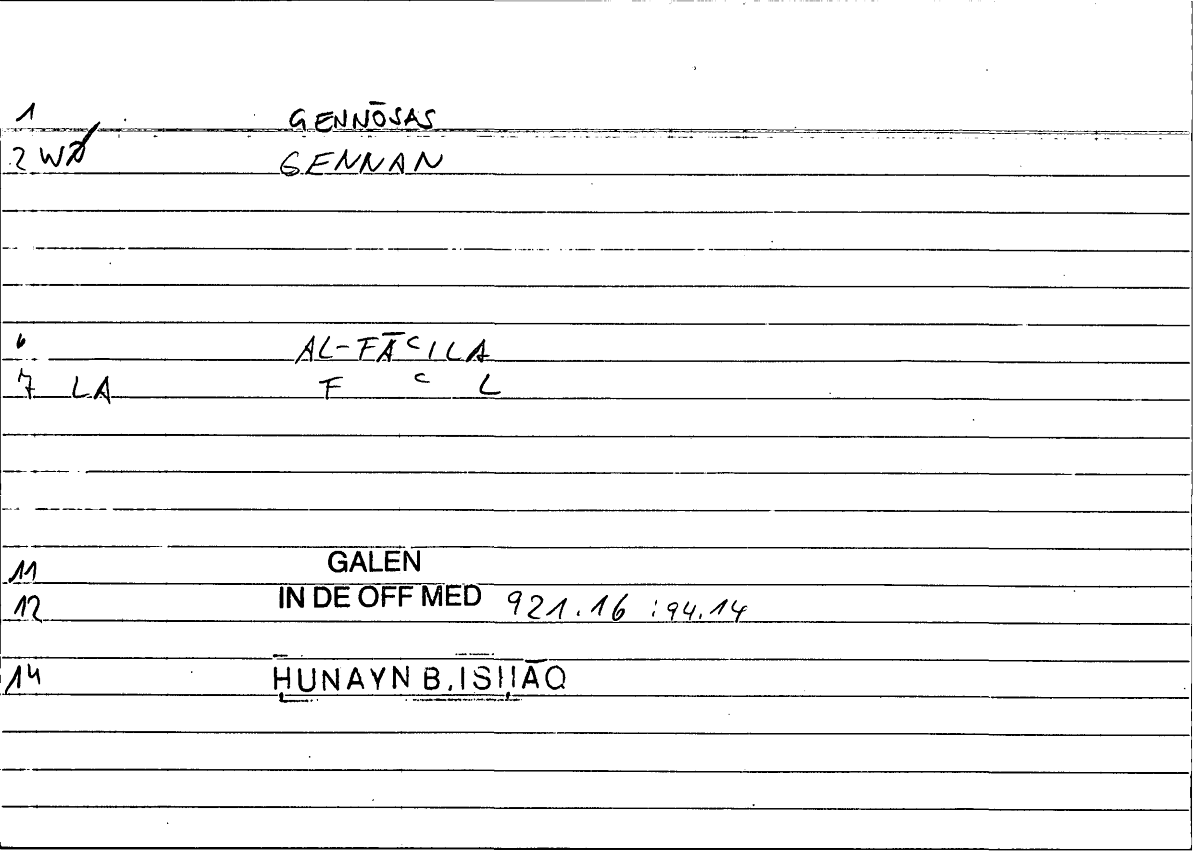 1 GENNŌSAS
2 WA GENNAN
6 AL-FĀʿILA
7 LA F ʿ L
11 GALEN
12 IN DE OFF MED 921.16 :94.14
14 ḤUNAYN B. ISḤĀQ